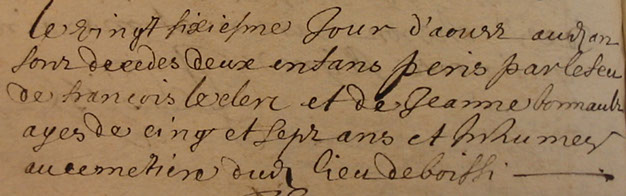 le vingt sixiesme Jour d'aoust audit an
sont decedes deux enfans peris par le feu
de francois le clerc et de Jeanne bonnault
ages de cinq et sept ans et Inhumes
au cemetiere dud lieu de boissi